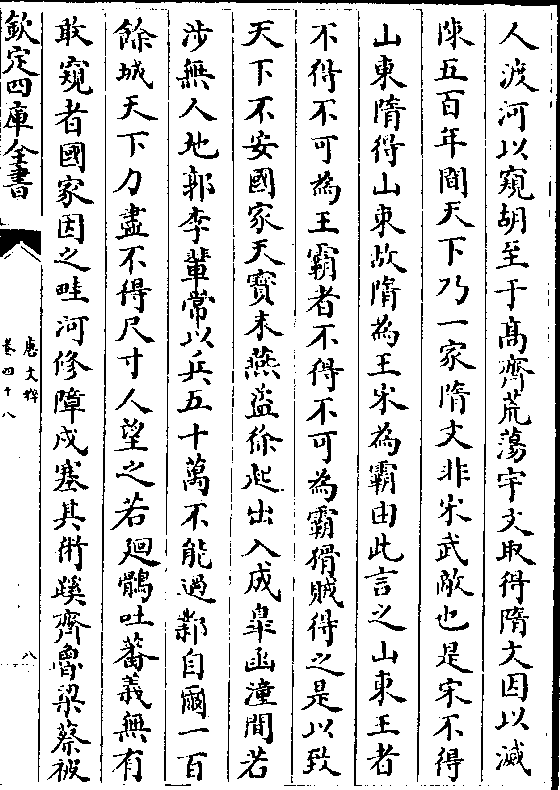 人渡河以窺胡至于髙齊荒蕩宇文取得隋文因以滅
陳五百年間天下乃一家隋文非宋武敵也是宋不得
山東隋得山東故隋為王宋為霸由此言之山東王者
不得不可為王霸者不得不可為霸猾賊得之是以致
天下不安國家天寳末燕盜徐起出入成臯函潼間若
涉無人地郭李輩常以兵五十萬不能過鄴自爾一百
餘城天下力盡不得尺寸人望之若廻鶻吐蕃義無有
敢窺者國家因之畦河修障戍塞其街蹊齊魯梁蔡被
欽定四庫全書
唐文粹
卷四十八
八